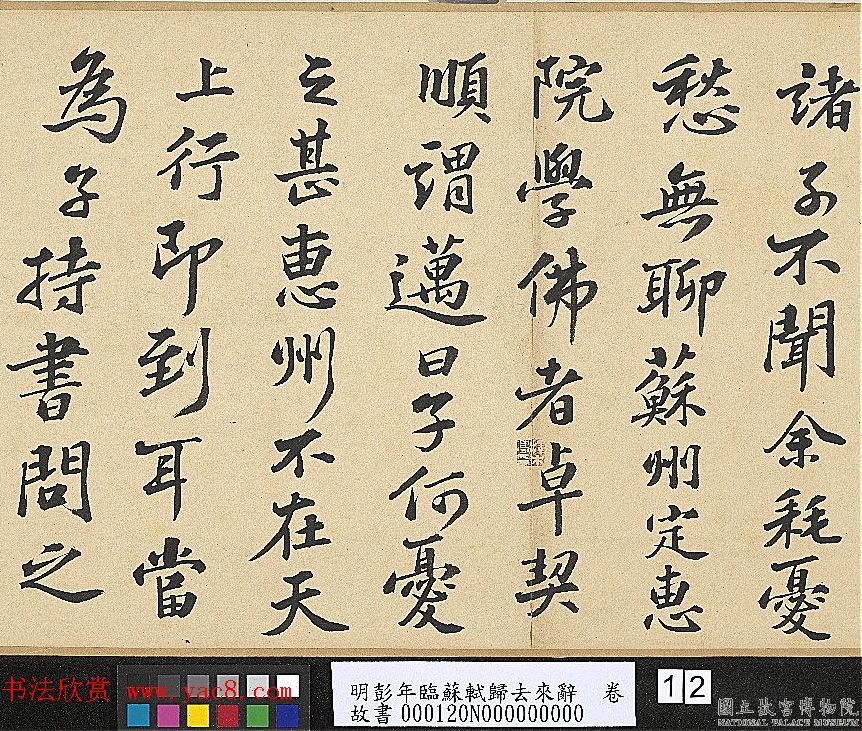 諸子不聞余耗憂
愁無聊蘇州定惠
院學佛者卓契
順謂邁曰子何憂
之甚惠州不在天
上行即到耳當
為子持書問之
书法欣赏 www.yac8.com
明彭年臨蘇軾歸去來辭 卷
故書000120N000000000
12
國立故宮博物院
NATIONAL PALACE MUSEUM